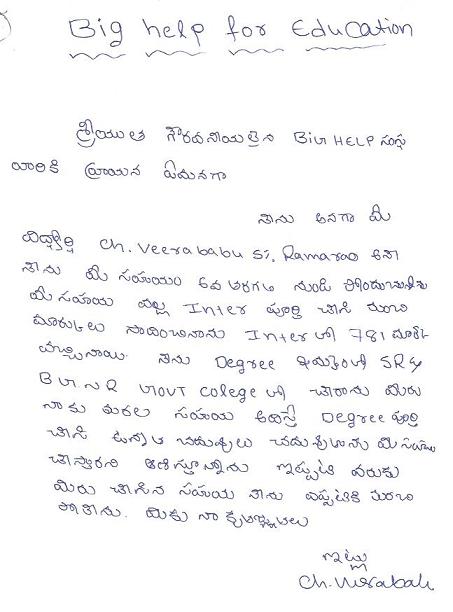 Big help for Education
శ్రీయుత గౌరవనీయులైన BIG HELP సంస్థ
వారికి వ్రాయున ఏమనగా
నాను అనగా మీ
విద్యార్థి Ch. Veerababu S/o Ramarao అనా
నాను మీ సహయం 6వ తరగతి నుండి పొందుచున్నాను
మీ సహయ వల్ల Inter పూర్తి చాసి మంచి
మార్కులు సాదించినాను Inter లో 781 మార్కు
వచ్చినాయి. నాను Degree SR &
BGNR GOVT Colege లో చారాను మిరు
నాకు మరల సహయ అందిస్తే Degree పూర్తి
చాసి ఉన్నత చదువులు మీ సహయ
చాస్తారని ఆశిస్తూన్నాను ఇప్పటి వరుకు
మిరు చాసిన సహయ నాను ఎప్పటికి మరచి
పోతాను. మికు నా కృతజ్ఞతలు
ఇట్లు
Ch. Veerababu